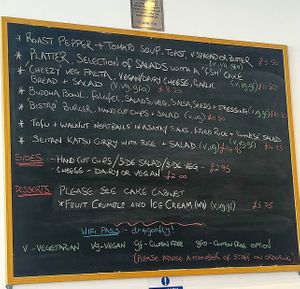 * ROAST PEPPER + TOMATO SOUP, TOAST, V SPREAD OR BUTTER (V, VG, GFO) £5.50
* PLATTER, SELECTION OF SALADS WITH A "FSH" CAKE
* CHEEZY VEG PASTA, VEGAN/DAIRY CHEESE, GARLIC
BREAD + SALAD (V, VG, GFO)
* BUDDHA BOWL, FALAFEL, SALADS, VEG, SALSA, SEEDS + DRESSING
* BISTRO BURGER, HAND CUT CHIPS + SALAD
* TOFU + WALNUT MEATBALLS IN A SATAY SAUCE, FRIED RICE + CHINESE SALAD
* SEITAN KATSU CURRY WITH RICE + SALAD
SIDES - HAND CUT CHIPS / SIDE SALAD / SIDE VEG - £2.95
- CHEESE - DAIRY OR VEGAN £2.00
DESSERTS PLEASE SEE CAKE CABINET
* FRUIT CRUMBLE AND ICE CREAM £5.75
WIFI PASS:- dragonfly!
V - VEGETARIAN Vg - VEGAN gf - GLUTEN FREE gfo - GLUTEN FREE OPTION
(PLEASE ADVISE A MEMBER OF STAFF ON ORDERING)